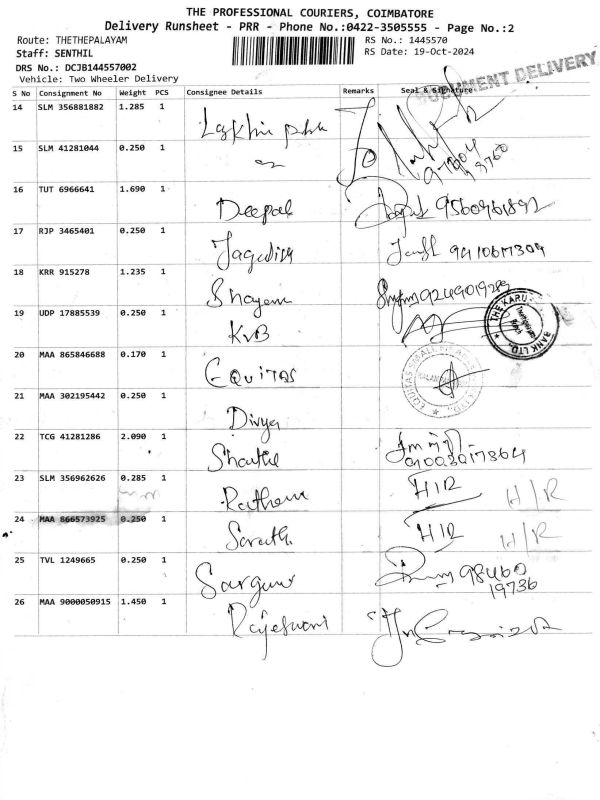 THE PROFESSIONAL COURIERS, COIMBATORE
Delivery Runsheet - PRR - Phone No.:0422-3505555 - Page No.:2
Route: THETHEPALAYAM RS No.: 1445570
Staff: SENTHIL RS Date: 19-Oct-2024
DRS No.: DCJB144557002
Vehicle: Two Wheeler Delivery
DOCUMENT DELIVERY
S No Consignment No Weight PCS Consignee Details Remarks Seal & Signature
14 SLM 356881882 1.285 1
15 SLM 41281044 0.250 1
16 TUT 6966641 1.690 1 Deepak 9560961892
17 RJP 3465401 0.250 1 Jagadish
18 KRR 915278 1.235 1 Shayam
19 UDP 17885539 0.250 1 KVB
THE KARUR BANK LTD.
20 MAA 865846688 0.170 1 EQUITAS
EQUITAS SMALL
21 MAA 302195442 0.250 1 Divya
22 TCG 41281286 2.090 1
23 SLM 356962626 0.285 1 H/R H/R
24 MAA 866573925 0.250 1 Sarath H/R H/R
25 TVL 1249665 0.250 1 98460
19736
26 MAA 9000050915 1.450 1 Rajeswari